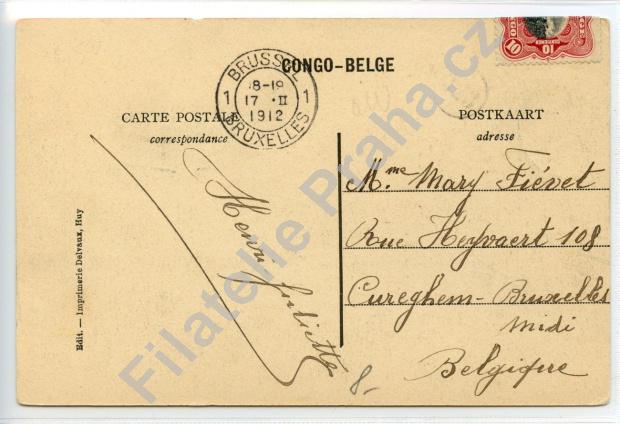 CONGO-BELGE
BRUSSEL
18-19
1 17 · II 1
1912
BRUXELLES
CARTE POSTALE
correspondance
POSTKAART
adresse
10 10
Henri Juliette
Mme Mary Fiévet
Rue Heyvaert 108
Cureghem-Bruxelles
Midi
Belgique
8-
Edit. — Imprimerie Delvaux, Huy
Filatelie Praha.cz